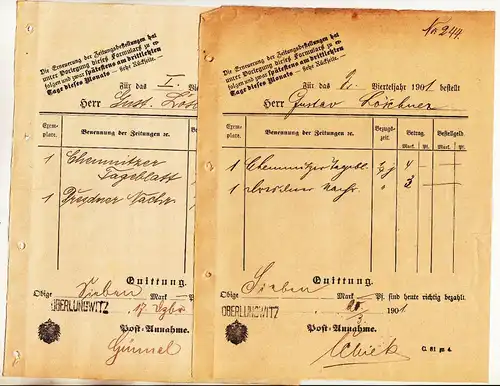 Die Erneuerung der Zeitungsbestellungen hat
unter Vorlegung dieses Formulars zu er-
folgen und zwar spätestens am drittletzten
Tage dieses Monats — siehe Rückseite.
Für das I. Vie
Herr Gust. Lös
Exem-
plare.
Benennung der Zeitungen ꝛc.
1 Chemnitzer
Tageblatt
1 Dresdner Nachr.
Quittung.
Obige Sieben Mark
OBERLUNGWITZ 17 Dzbr
Post-Annahme.
No 244.
Die Erneuerung der Zeitungsbestellungen hat
unter Vorlegung dieses Formulars zu er-
folgen und zwar spätestens am drittletzten
Tage dieses Monats — siehe Rückseite.
Für das Vierteljahr 1901 bestellt
Herr Gustav
Exem-
plare.
Benennung der Zeitungen ꝛc.
Bezugs-
zeit.
Betrag.
Mark. Pf.
Bestellgeld.
Mark. Pf.
1 Chemnitzer Tagebl. 4 —
1 Dresdner Nachr. 3 —
Quittung.
Sieben
Obige Mark Pf. sind heute richtig bezahlt.
OBERLUNGWITZ 1901
Post-Annahme.
C. 81 m 4.